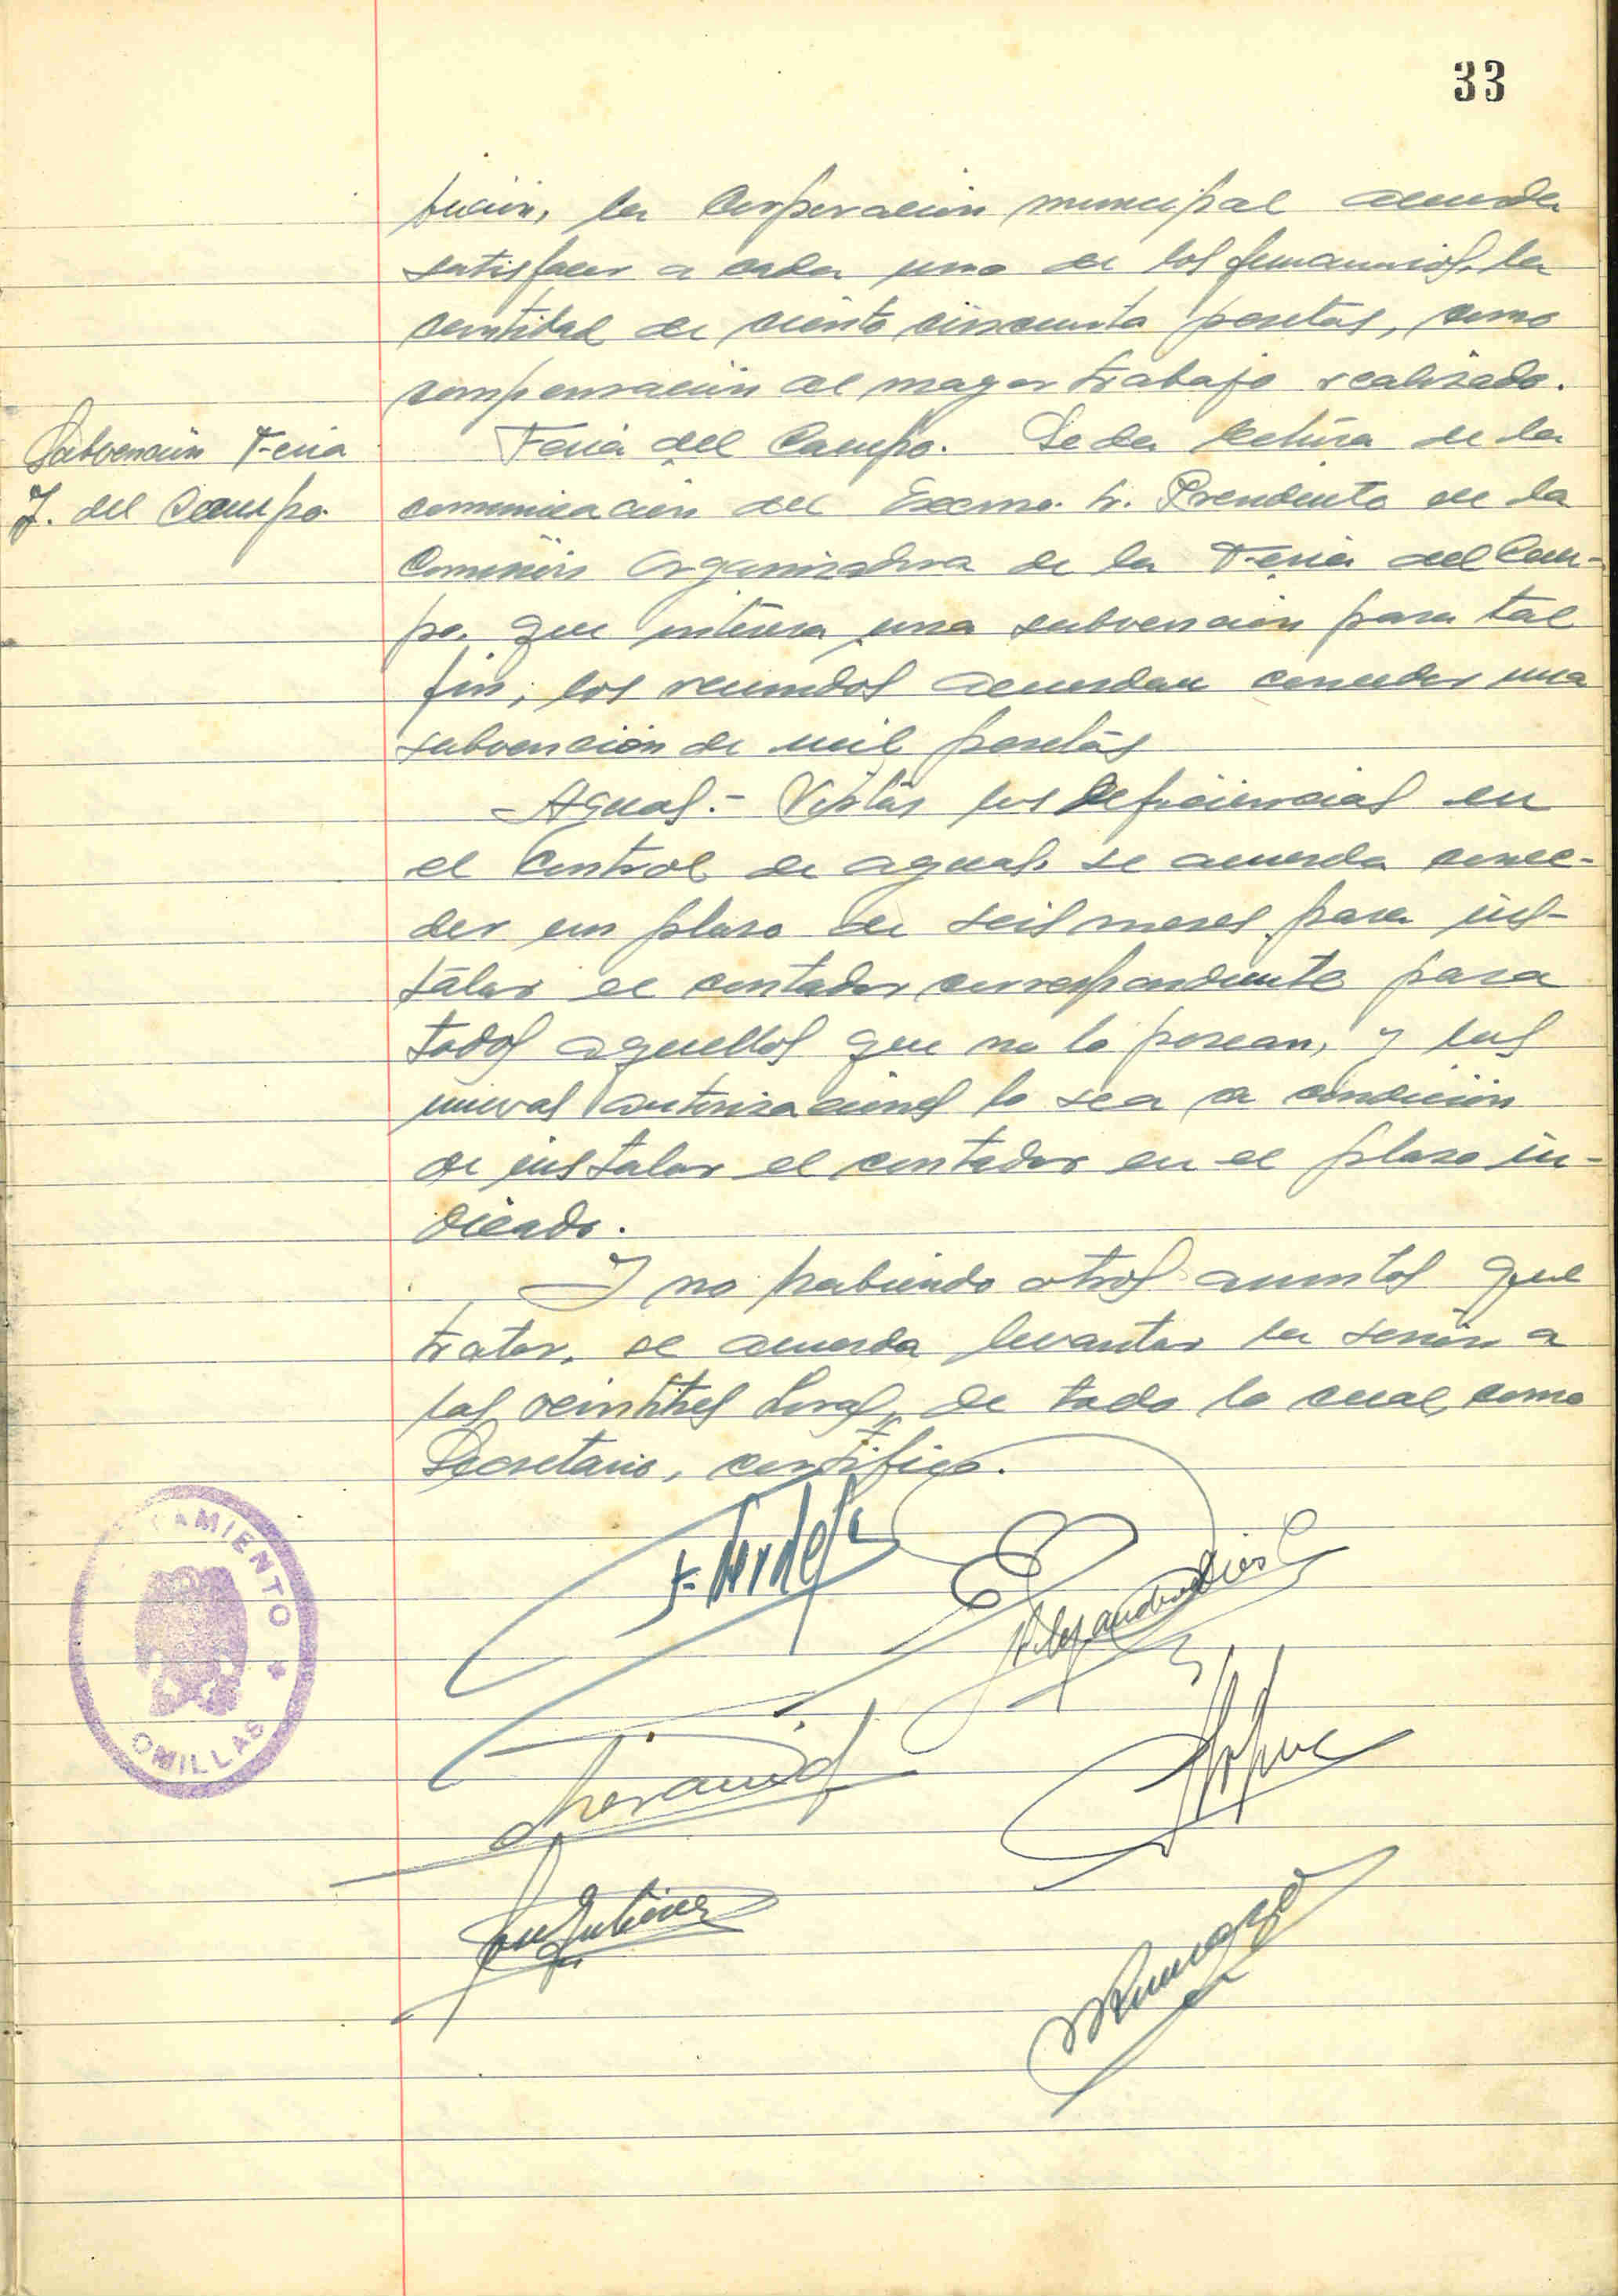 33
la Corporación municipal acuerda
satisfacer a cada uno de los funcionarios, la
cantidad de ciento cincuenta pesetas, como
compensación al mayor trabajo realizado.
Subvención Feria
I. del Campo.
Feria del Campo. Se da lectura de la
comunicación del Excmo. Sr. Presidente de la
Comisión Organizadora de la Feria del Cam-
po, que interesa una subvención para tal
fin, los reunidos acuerdan conceder una
subvención de mil pesetas
Aguas.- Vistas las deficiencias en
el Control de aguas, se acuerda conce-
der un plazo de seis meses para ins-
talar el contador correspondiente para
todos aquellos que no lo posean, y las
nuevas autorizaciones lo sea a condición
de instalar el contador en el plazo in-
dicado.
Y no habiendo otros asuntos que
tratar, se acuerda levantar la sesión a
las veintitres horas, de todo lo cual, como
Secretario, certifico.
AMIENTO
OMILLAS
Alejandro Díes
Gutierrez